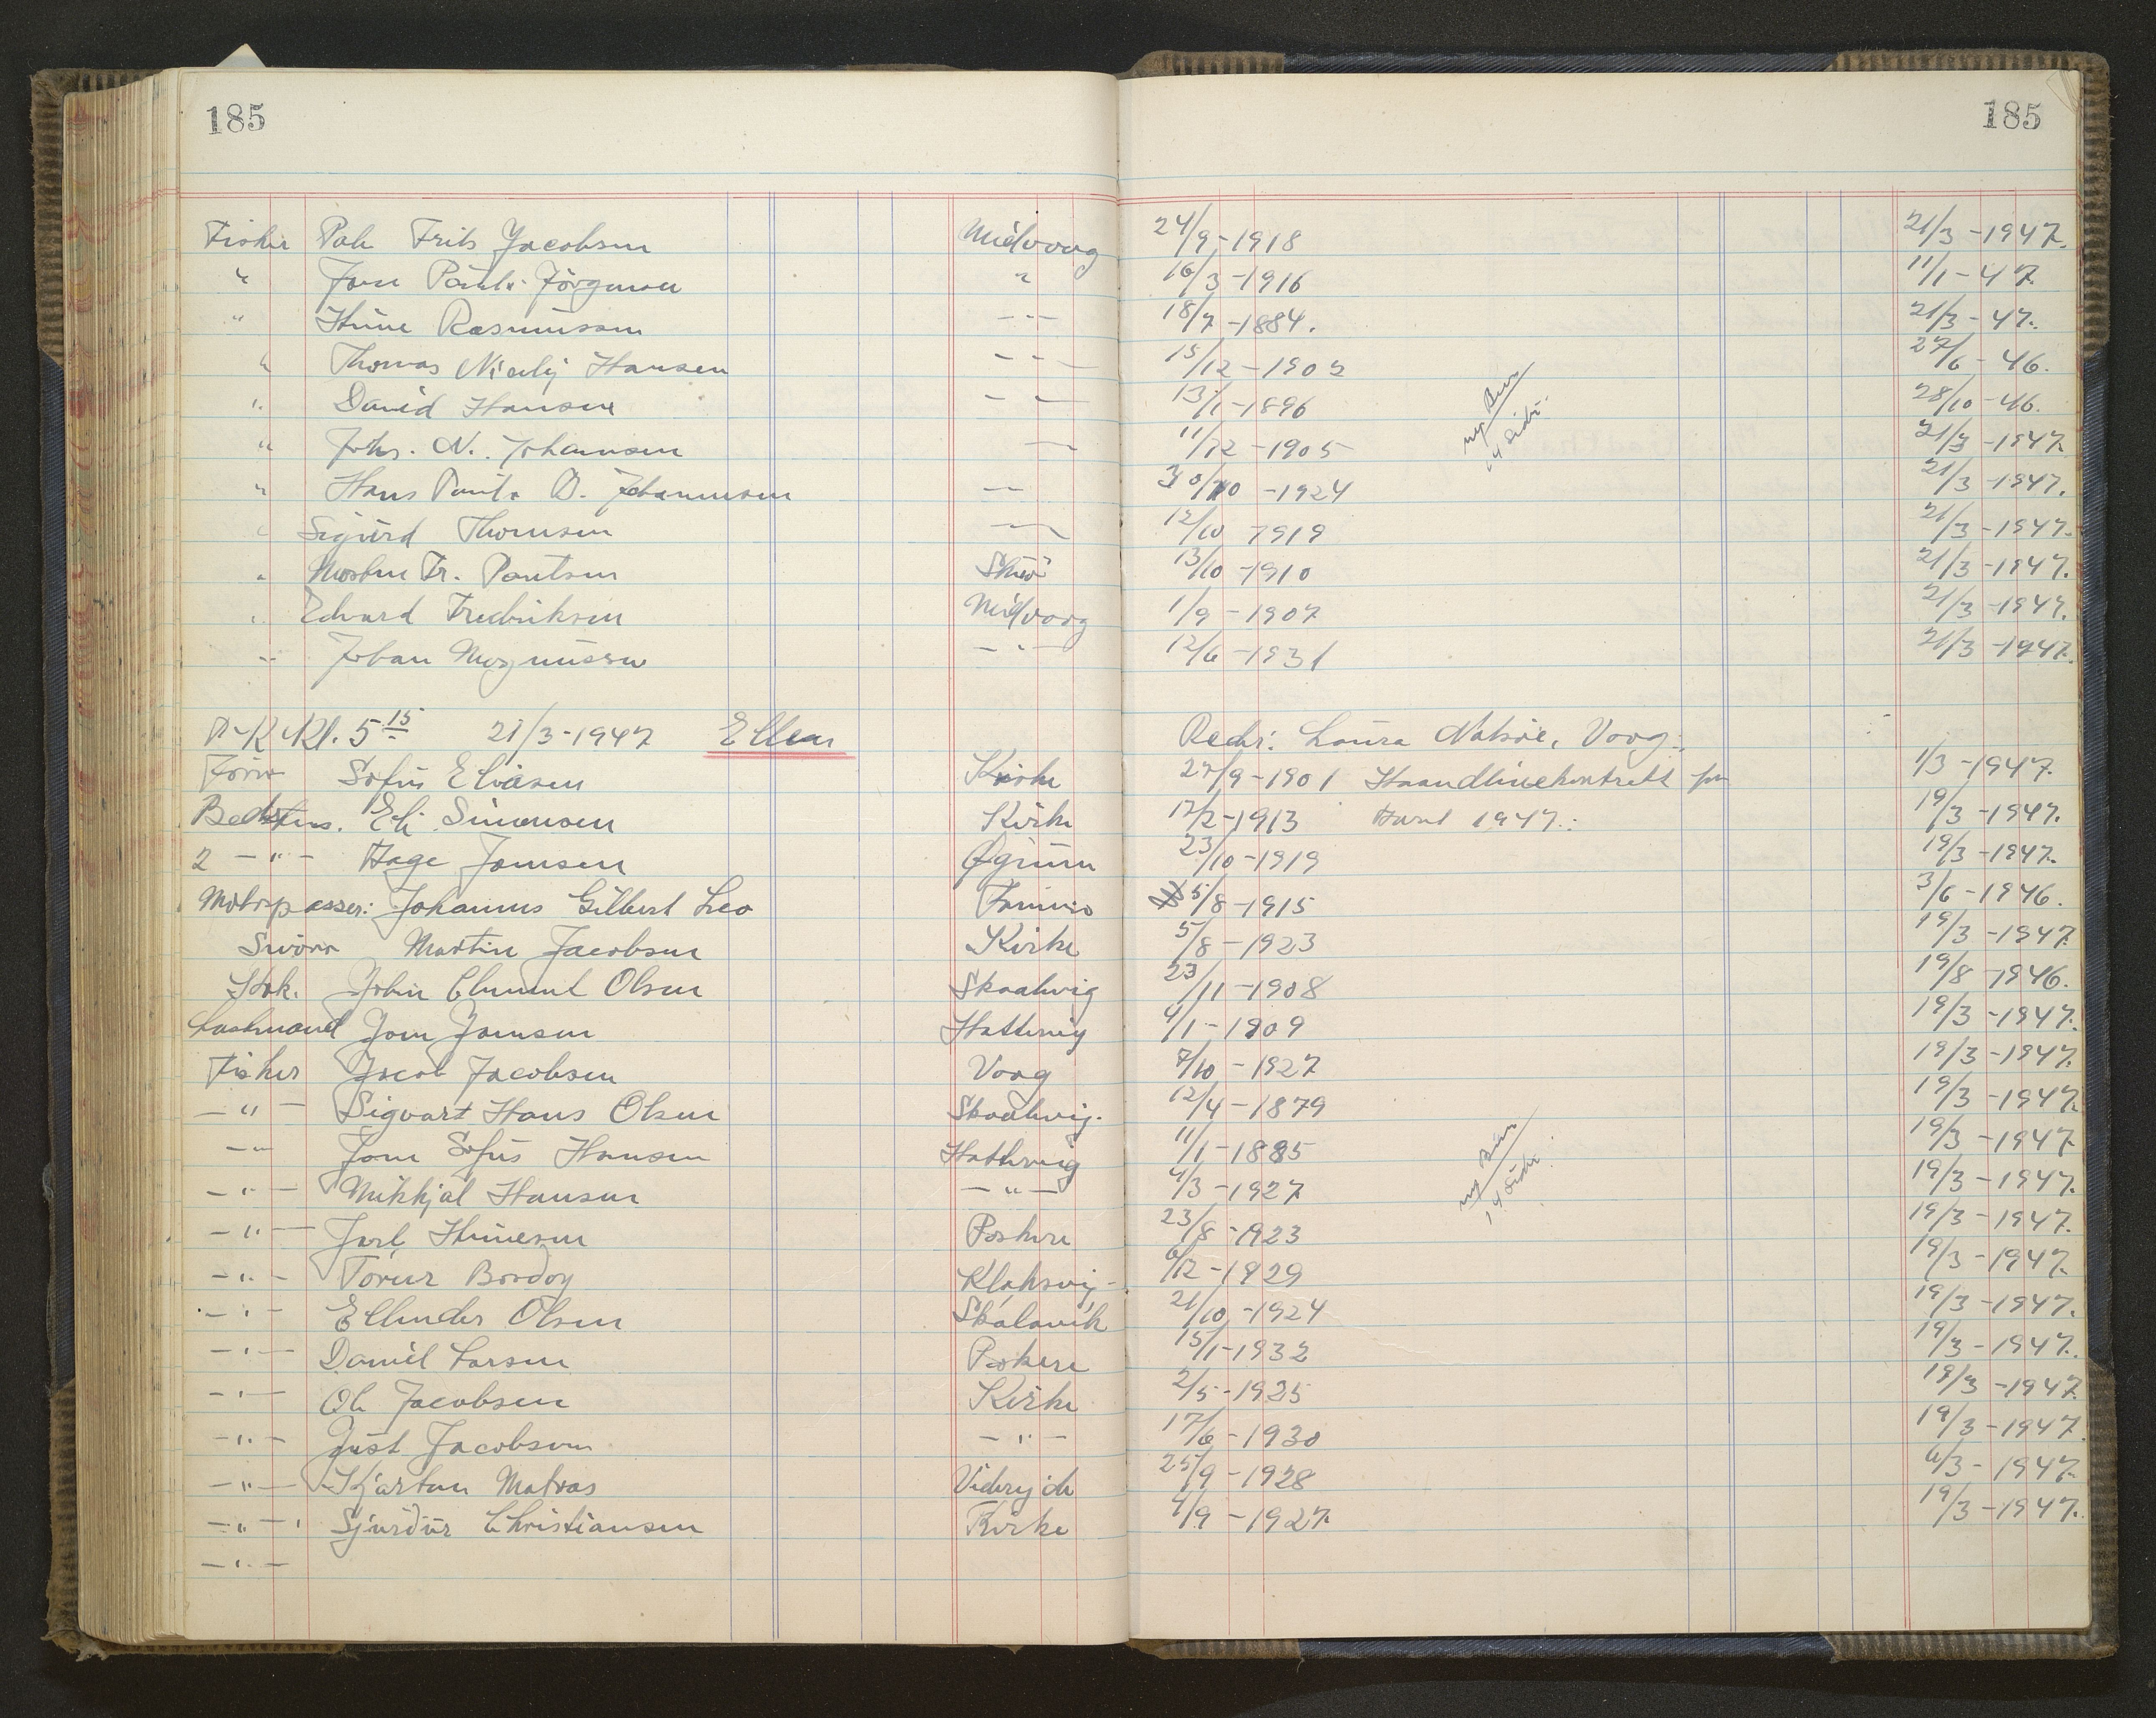 185 185
Fisker Pole Frits Jacobsen Midvaag 24/9-1918 21/3-1947.
" Jens Paula Jörgensen " 16/3-1916 11/1-47.
" Hans Rasmussen -"- 18/7-1884. 21/3-47.
" Thomas Nicolaj Hansen - - 15/12-1905 27/6-46.
" David Hansen - - 13/1-1896 28/10-46.
" Johs. N. Johannsen - 11/12-1905 21/3-1947.
14 sidr.
" Hans Paula D. Johannesen - 30/10-1924 21/3-1947.
" Sigurd Thomsen - 12/10 1919 21/3-1947.
" Morten Fr. Poulsen 13/10-1910 21/3-1947.
" Edvard Fredriksen Midvaag 1/9-1907 21/3-1947.
" Johan Magnussen -"- 12/6-1931 21/3-1947.
Kl. 5 15 21/3-1947 Ellen Redr: Laura Nolsöe, Vaag.
Förer Sofus Eliasen Kirke 27/9-1901 Haandlinekontrakt for 1/3-1947.
Bedstm. Eli Simonsen Kirke 12/2-1913 Aaret 1947. 19/3-1947.
2 -"- Hage Joensen Øgrum 23/10-1919 19/3-1947.
Motorpasser: Johannes Gilbert Leo Famien 5/8-1915 3/6-1946.
Smörer Martin Jacobsen Kirke 5/8-1923 19/3-1947
Kok. John Clement Olsen Skaalvig 23/11-1908 19/8-1946.
Lastmand Joen Joensen Hattervig 4/1-1909 19/3-1947.
Fisker Jacob Jacobsen Vaag 7/10-1927 19/3-1947.
-"- Sigvart Hans Olsen Skaalvig. 12/4-1879 19/3-1947.
-"- Joen Sofus Hansen Hattervig 11/1-1885 19/3-1947
-"- Mikkjal Hansen -"- 4/3-1927 19/3-1947.
14 sidr.
-"- Jarl Himesen Porkere 23/8-1923 19/3-1947.
-"- Tórur Bordoy Klaksvig- 6/12-1929 19/3-1947.
-"- Ellinder Olsen Skálavík 21/10-1924 19/3-1947.
-"- Daniel Larsen Porkere 15/1-1932 19/3-1947.
-"- Ole Jacobsen Kirke 2/5-1925 19/3-1947
-"- Just Jacobsen -"- 17/6-1930 19/3-1947.
-"- Kjartan Matras Viderejde 25/9-1928 6/3-1947.
-"- Sjúrdur Christiansen Kirke 4/9-1927. 19/3-1947.
-"-